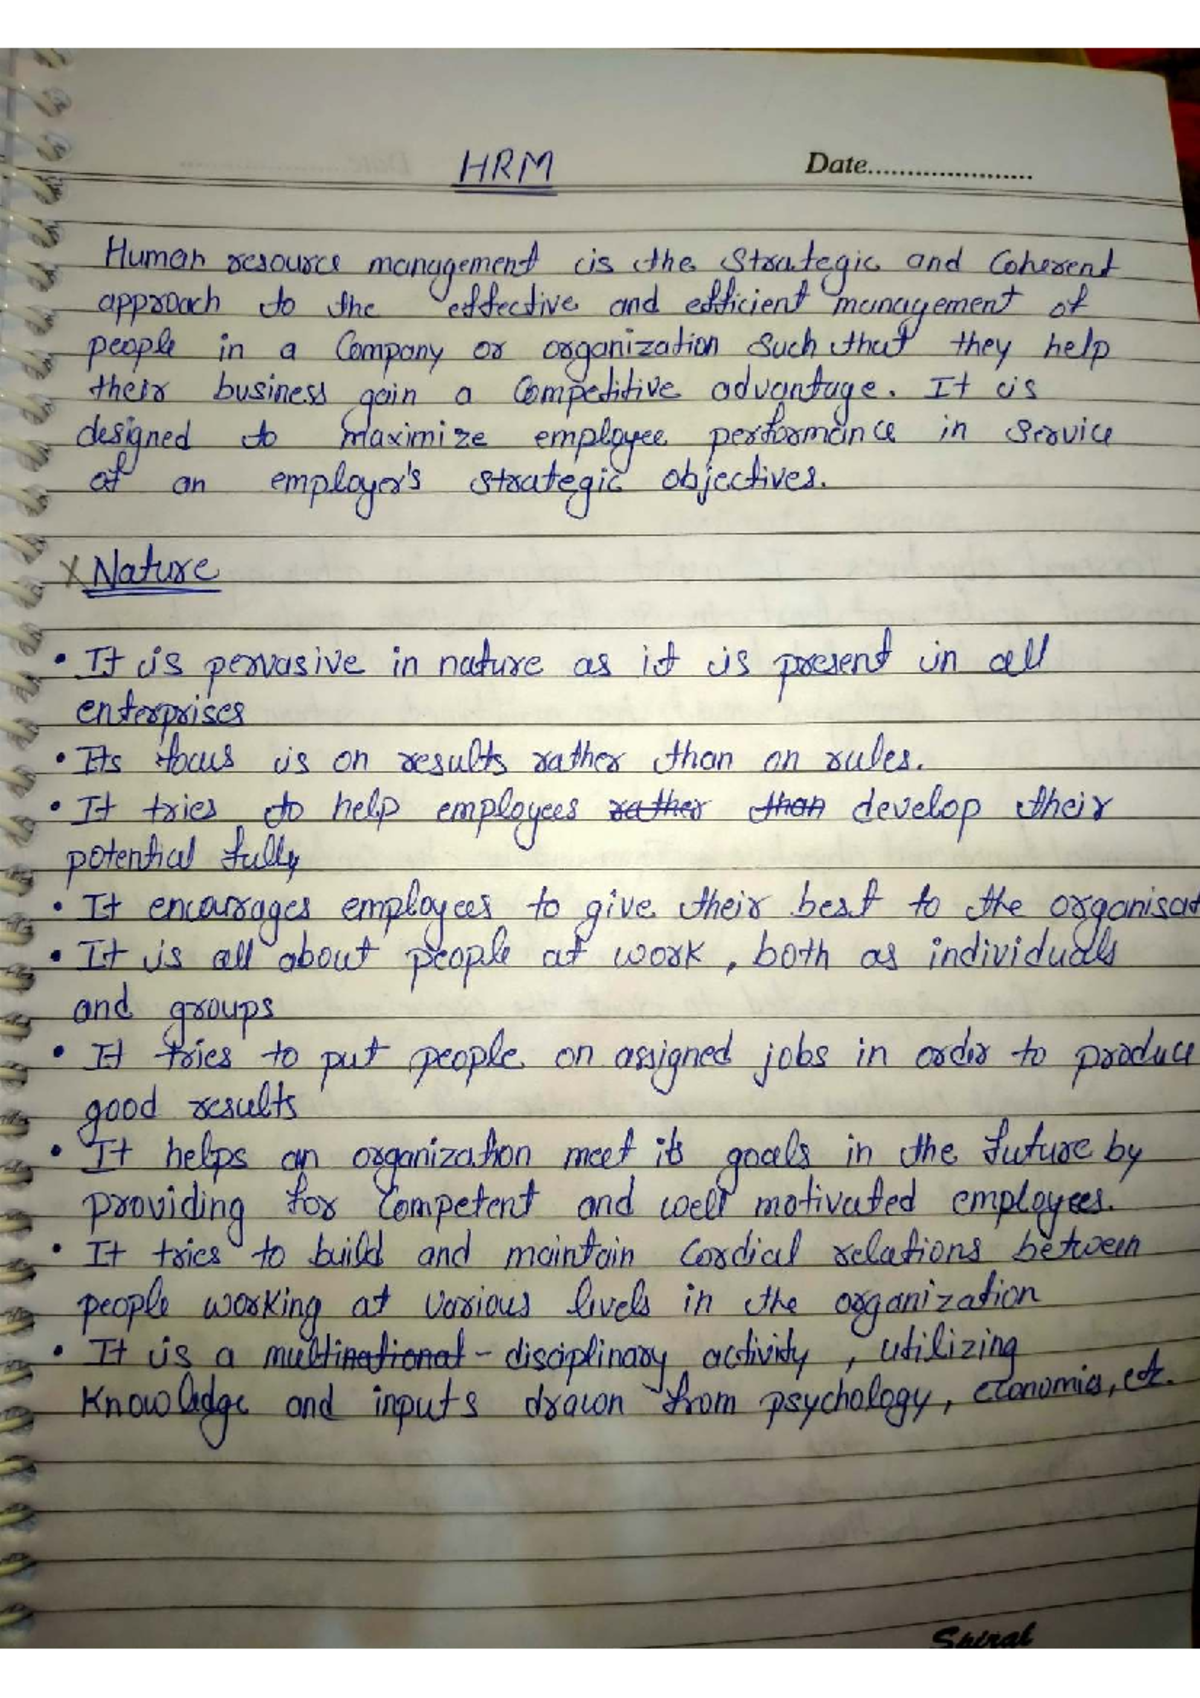 HRM
Date.....................
Human resource management is the Strategic and Coherent
approach to the effective and efficient management of
people in a Company or organization Such that they help
their business gain a Competitive advantage. It is
designed to maximize employee performance in service
of an employer's strategic objectives.
X Nature
• It is pervasive in nature as it is present in all
enterprises
• Its focus is on results rather than on rules.
• It tries to help employees rather than develop their
potential fully
• It encourages employees to give their best to the organisat
• It is all about people at work, both as individuals
and groups
• It tries to put people on assigned jobs in order to produce
good results
• It helps an organization meet its goals in the future by
providing for Competent and well motivated employees.
• It tries to build and maintain Cordial relations between
people working at various levels in the organization
• It is a multinational - disciplinary activity, utilizing
Knowledge and inputs drawn from psychology, economics, etc.
Spiral